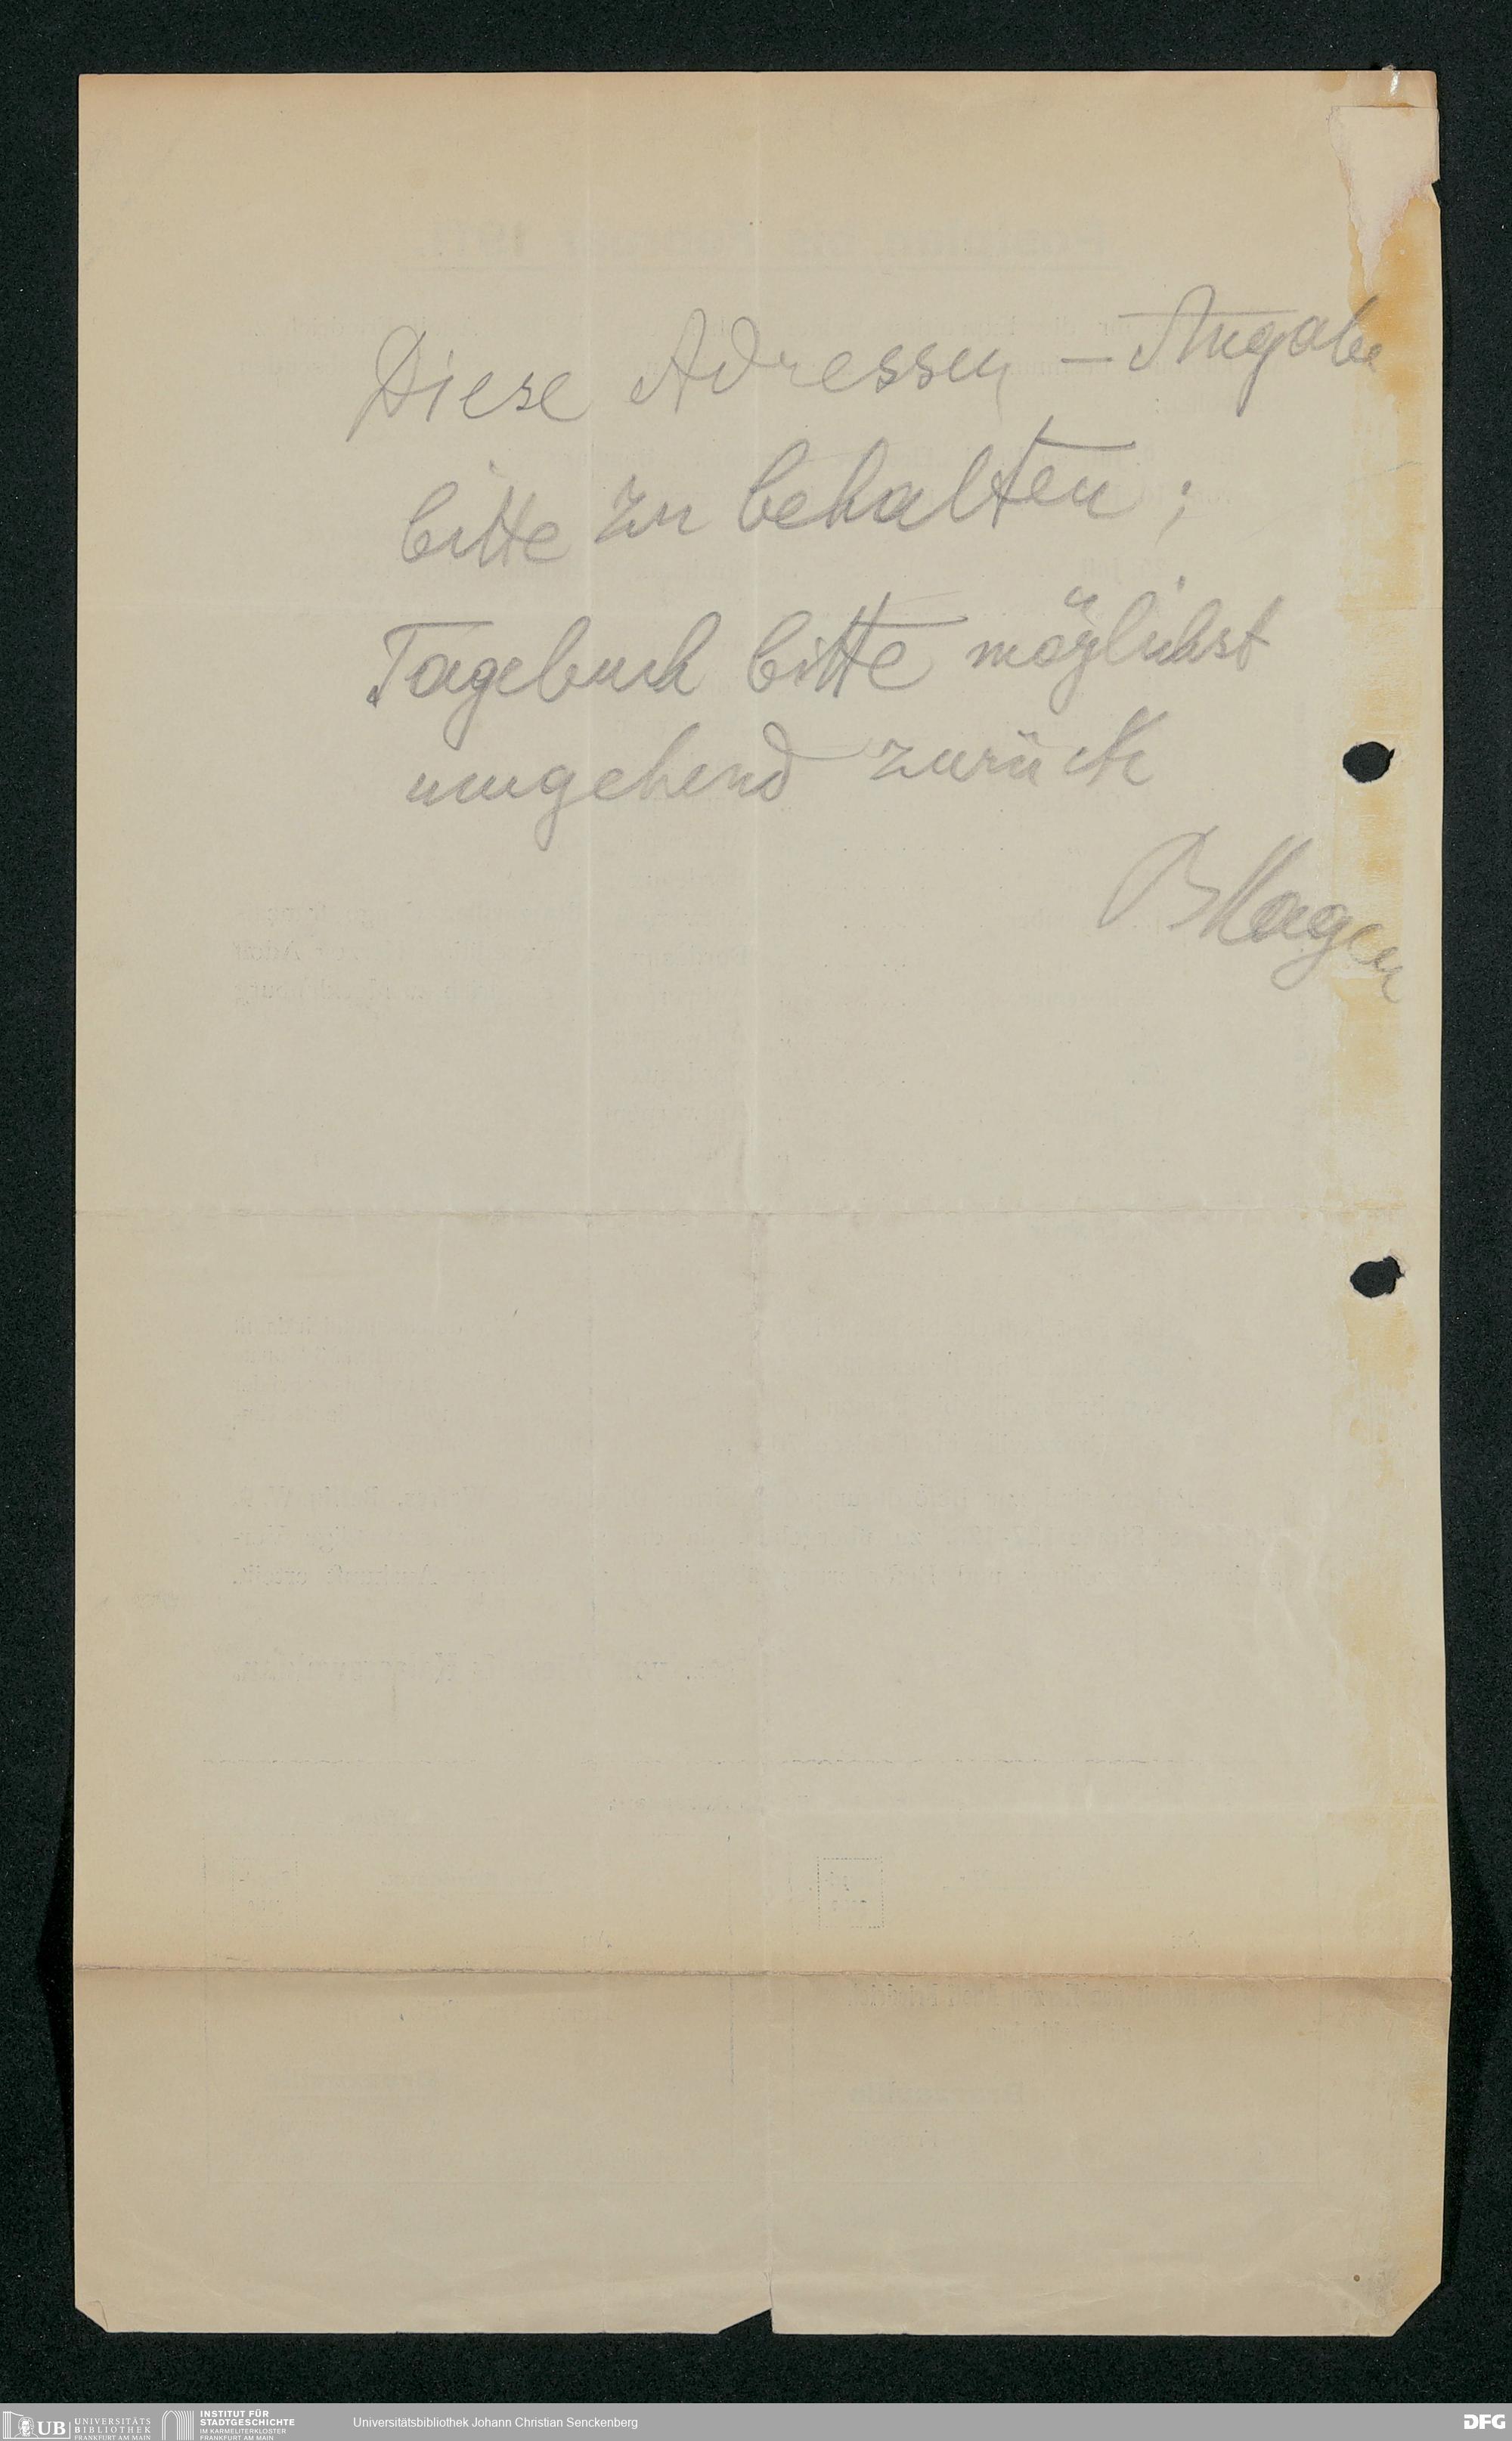 Diese Adressen – Angabe
bitte zu behalten;
Tagebuch bitte möglichst
umgehend zurück
BHagen
UB UNIVERSITÄTS
BIBLIOTHEK
FRANKFURT AM MAIN
INSTITUT FÜR
STADTGESCHICHTE
IM KARMELITERKLOSTER
FRANKFURT AM MAIN
Universitätsbibliothek Johann Christian Senckenberg
DFG